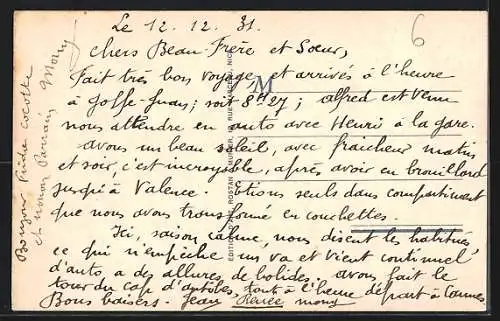 Le 12.12.31.
6
chers Beau-Frère et Soeur,
Fait très bon voyage, et arrivés à l'heure
à Golfe-Juan; soit 8h27; alfred est venu
nous attendre en auto avec Henri à la gare.
avons un beau soleil, avec fraicheur matin
et soir, c'est incroyable, après avoir eu brouillard
jusqu'à Valence. Etions seuls dans compartiment
que nous avons transformé en couchettes.
Ici, saison calme, nous disent les habitués
ce qui n'empêche un va et vient continuel
d'autos a des allures de bolides. avons fait le
tour du cap d'antibes, tout à l'heure départ à Cannes
Bons baisers. Jean Renée mony
Bonjour Pierre cocotte
et Parrain Mony
M
EDITIONS ROSTAN